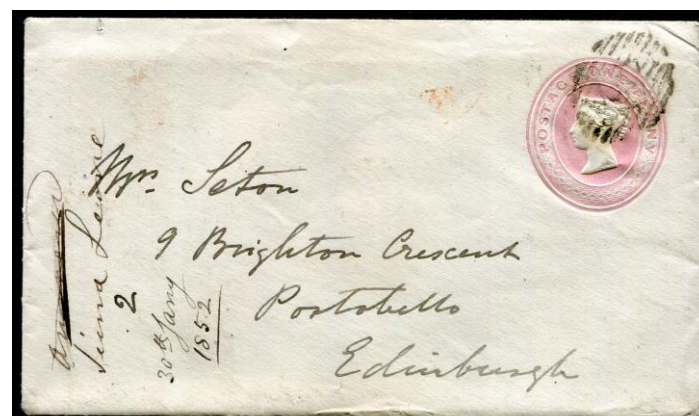 POSTAGE ONE PENNY
Mrs Seton
9 Brighton Crescent
Portobello
Edinburgh
Sierra Leone
2
30th Jany
1852